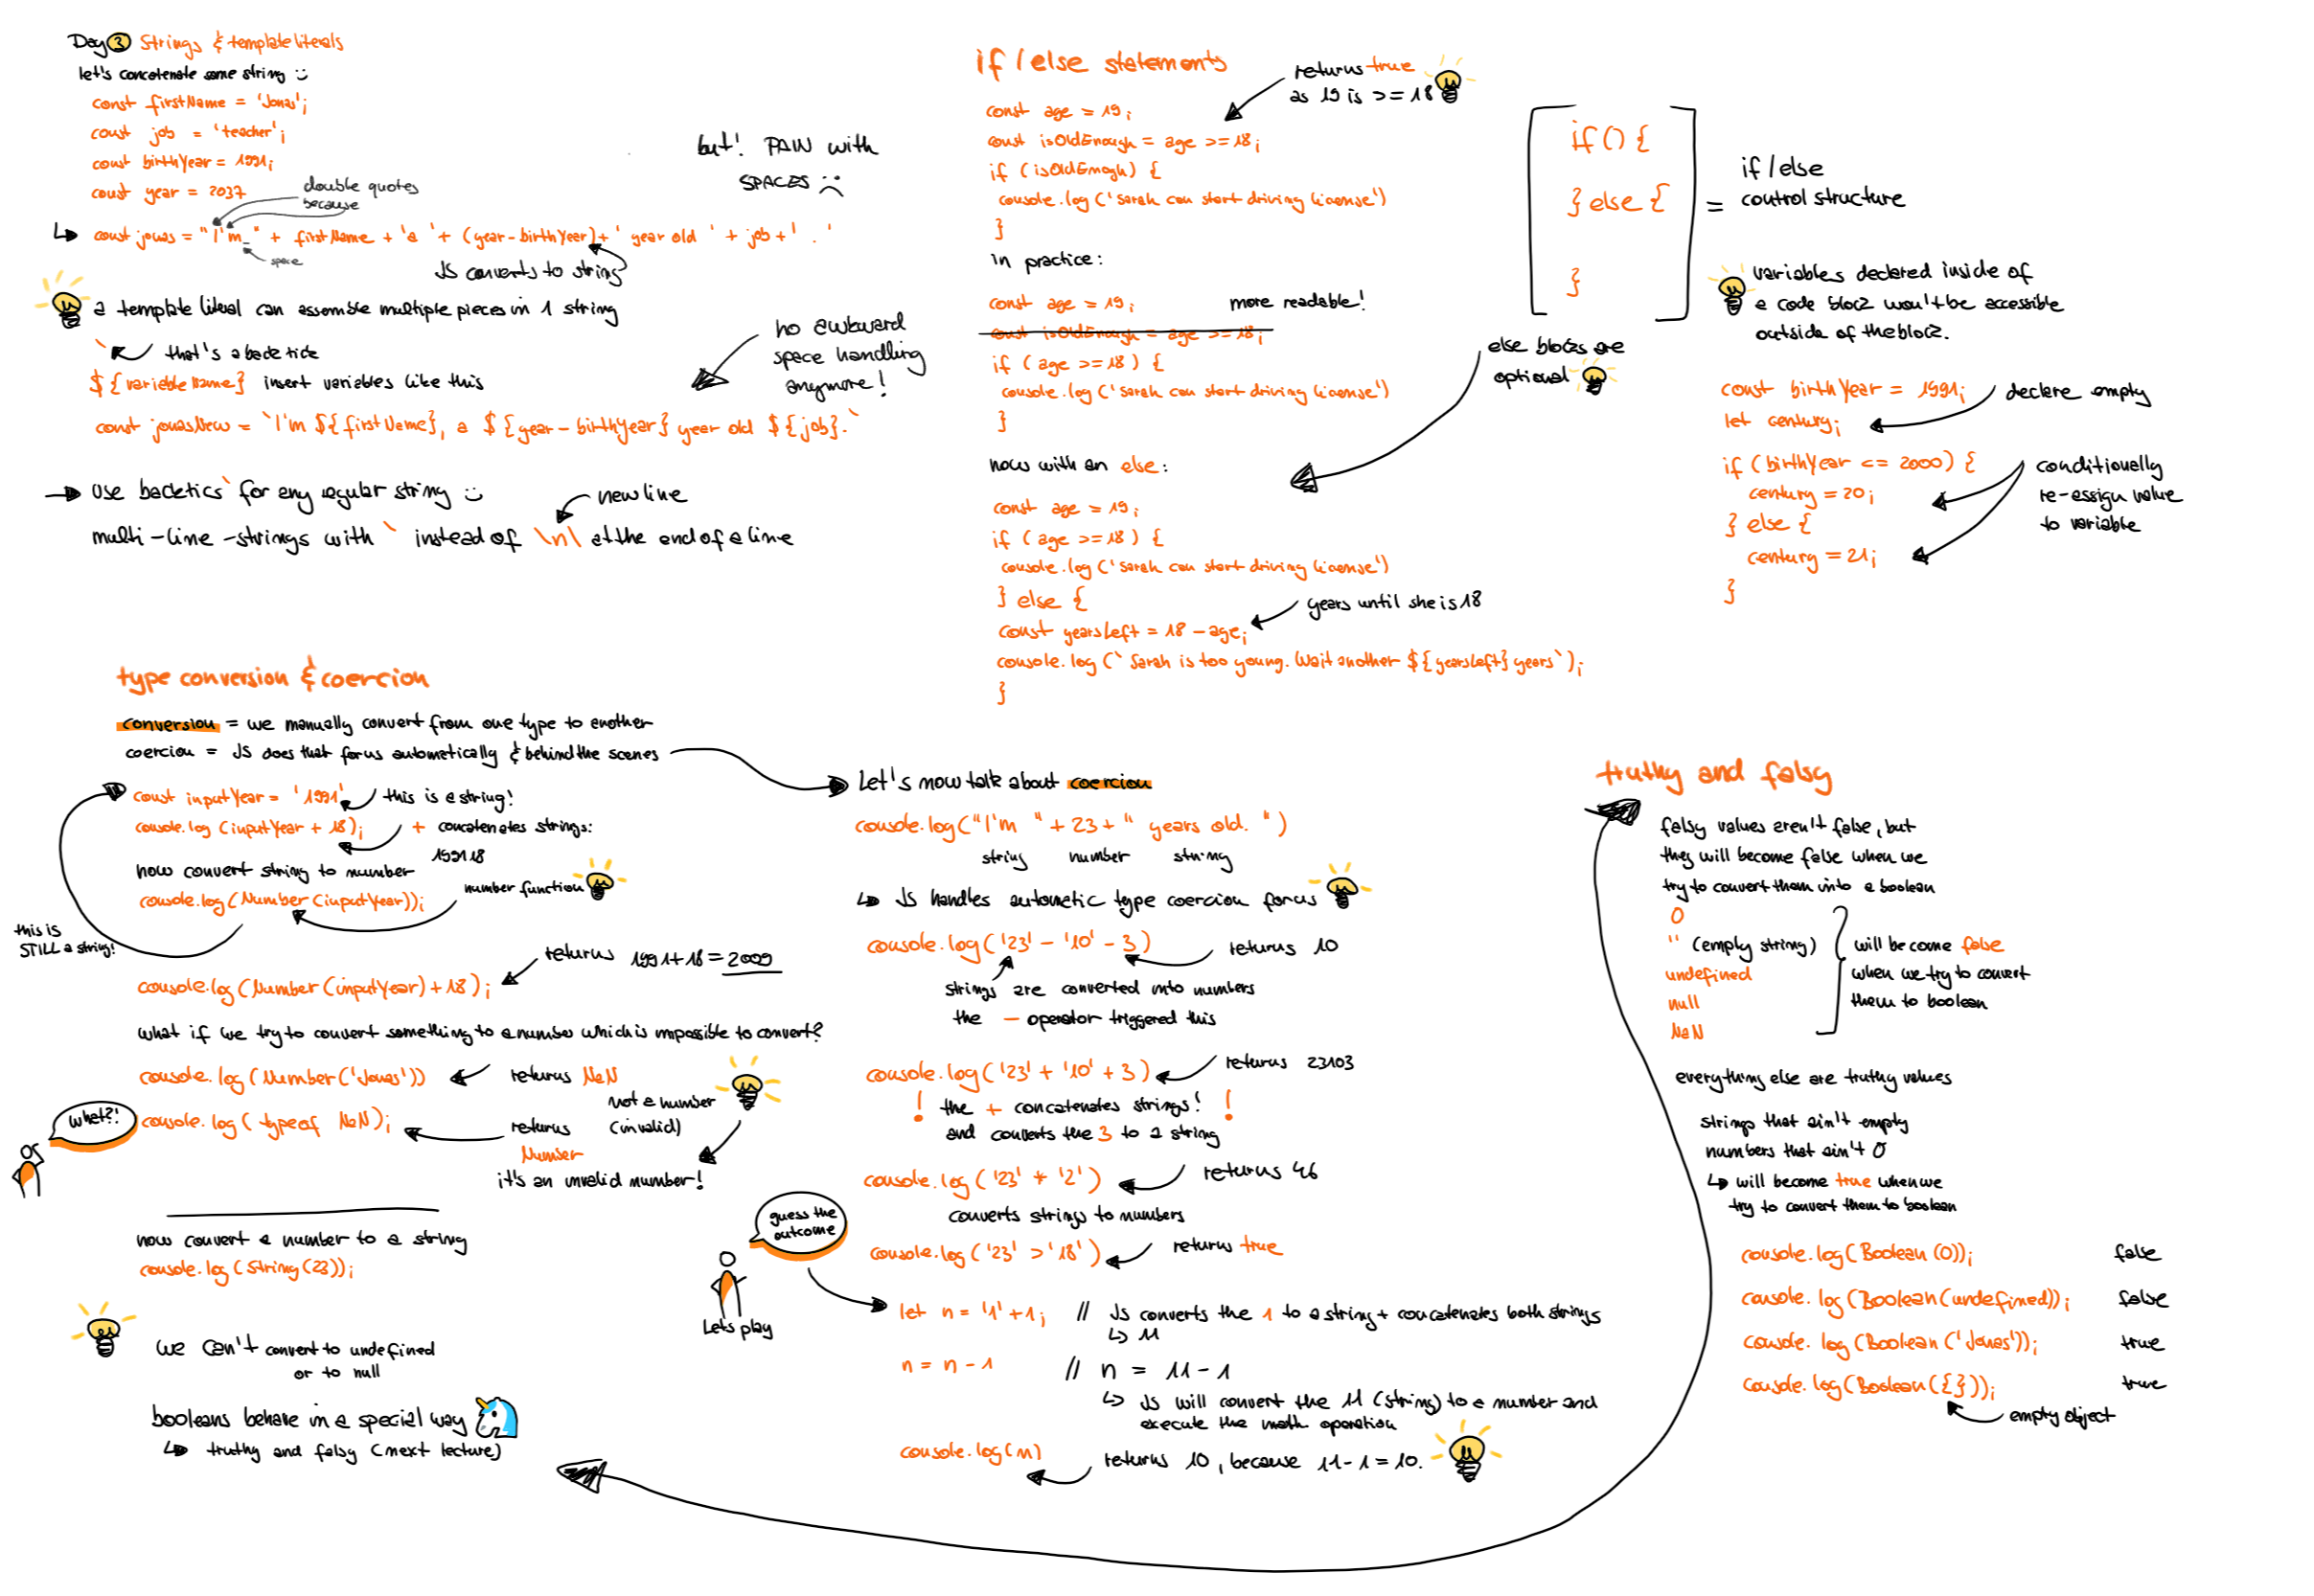 Day 3 Strings & template literals
let's concatenate some string :)
const firstName = 'Jonas';
const job = 'teacher';
const birthYear = 1991;
const year = 2037
double quotes
because
const jonas = "I'm_" + firstName + 'a ' + (year - birthYear) + ' year old ' + job + ' . '
space
JS converts to string
but! PAIN with
SPACES :(
a template literal can assemble multiple pieces in 1 string
` that's a backtick
${variableName} insert variables like this
no awkward
space handling
anymore!
const jonasNew = `I'm ${firstName}, a ${year - birthYear} year old ${job}.`
use backtics ` for any regular string :)
newline
multi-line-strings with ` instead of \n\ at the end of a line
if / else statements
returns true
as 19 is >= 18
const age = 19;
const isOldEnough = age >= 18;
if (isOldEnogh) {
console.log ('Sarah can start driving license')
}
in practice:
const age = 19; more readable!
const isOldEnough = age >= 18;
if (age >= 18) {
console.log ('Sarah can start driving license')
}
else blocks are
optional
now with an else:
const age = 19;
if (age >= 18) {
console.log ('Sarah can start driving license')
} else {
years until she is 18
const yearsLeft = 18 - age;
console.log (`Sarah is too young. Wait another ${yearsLeft} years`);
}
if () {
} else {
}
= if / else
control structure
variables declared inside of
a code block won't be accessible
outside of the block.
const birthYear = 1991; declare empty
let century;
if (birthYear <= 2000) {
century = 20;
} else {
century = 21;
}
conditionally
re-assign value
to variable
type conversion & coercion
conversion = we manually convert from one type to another
coercion = JS does that for us automatically & behind the scenes
const inputYear = '1991' this is a string!
console.log (inputYear + 18); + concatenates strings:
199118
now convert string to number
number function
console.log (Number (inputYear));
this is
STILL a string!
returns 1991 + 18 = 2009
console.log (Number (inputYear) + 18);
what if we try to convert something to a number which is impossible to convert?
console.log (Number ('Jonas')) returns NaN
not a number
(invalid)
what?!
console.log ( typeof NaN); returns
Number
it's an invalid number!
now convert a number to a string
console.log (String (23));
we can't convert to undefined
or to null
booleans behave in a special way
truthy and falsy (next lecture)
Let's now talk about coercion
console.log ("I'm " + 23 + " years old. ")
string number string
JS handles automatic type coercion for us
console.log ('23' - '10' - 3) returns 10
strings are converted into numbers
the - operator triggered this
console.log ('23' + '10' + 3) returns 23103
! the + concatenates strings! !
and converts the 3 to a string
console.log ('23' * '2') returns 46
converts strings to numbers
console.log ('23' > '18') returns true
guess the
outcome
Lets play
let n = '1' + 1; // JS converts the 1 to a string + concatenates both strings
11
n = n - 1 // n = 11 - 1
JS will convert the 11 (string) to a number and
execute the math operation
console.log (n) returns 10, because 11 - 1 = 10.
truthy and falsy
falsy values aren't false, but
they will become false when we
try to convert them into a boolean
0
'' (empty string)
undefined
null
NaN
will become false
when we try to convert
them to boolean
everything else are truthy values
strings that ain't empty
numbers that ain't 0
will become true when we
try to convert them to boolean
console.log (Boolean (0)); false
console.log (Boolean (undefined)); false
console.log (Boolean ('Jonas')); true
console.log (Boolean ({})); true
empty object